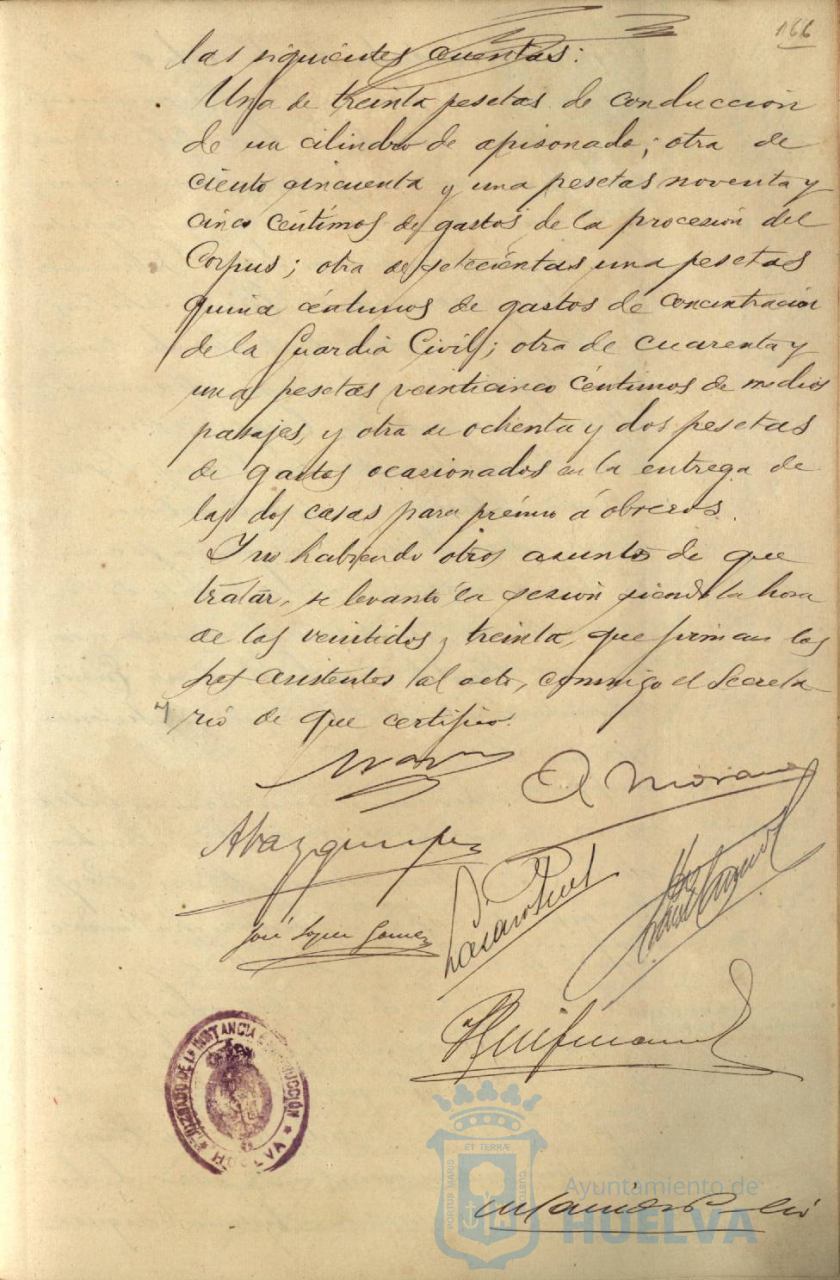 166
las siguientes cuentas:
Una de treinta pesetas de conducción
de un cilindro de apisonado; otra de
ciento cincuenta y una pesetas noventa y
cinco céntimos de gastos de la procesión del
Corpus; otra de setecientas una pesetas
quince céntimos de gastos de concentración
de la Guardia Civil; otra de cuarenta y
una pesetas veinticinco céntimos de medios
pasajes, y otra de ochenta y dos pesetas
de gastos ocasionados en la entrega de
las dos casas para premio á obreros.
Y no habiendo otros asuntos de que
tratar, se levantó la sesión siendo la hora
de las veintidos y treinta, que firman los
Sres asistentes al acto, conmigo el Secreta-
rio de que certifico.
José López Gómez
JUZGADO DE 1ª INSTANCIA É INSTRUCCIÓN
* HUELVA *
PORTUS MARIS ET TERRÆ CUSTODIA
Ayuntamiento de
HUELVA